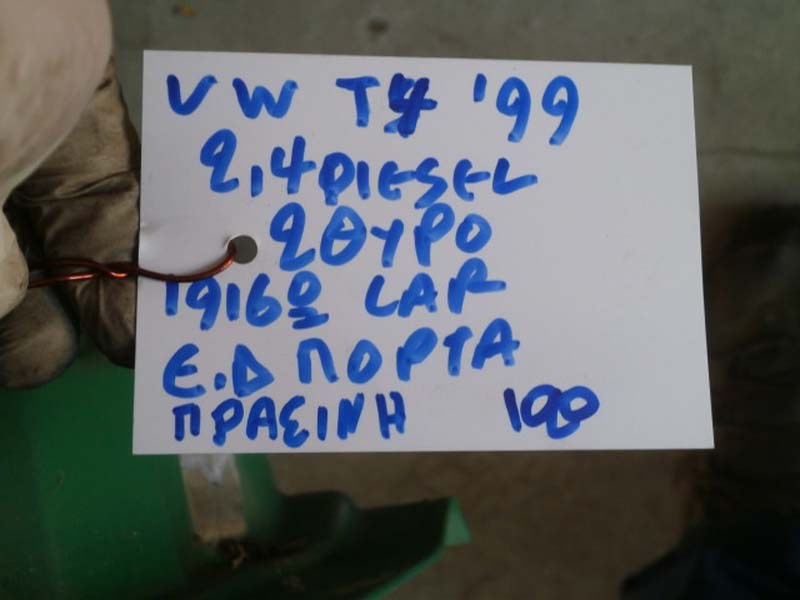 VW T4 '99
2,4 DIESEL
2ΘΥΡΟ
LAR
Ε.Δ ΠΟΡΤΑ
ΠΡΑΣΙΝΗ